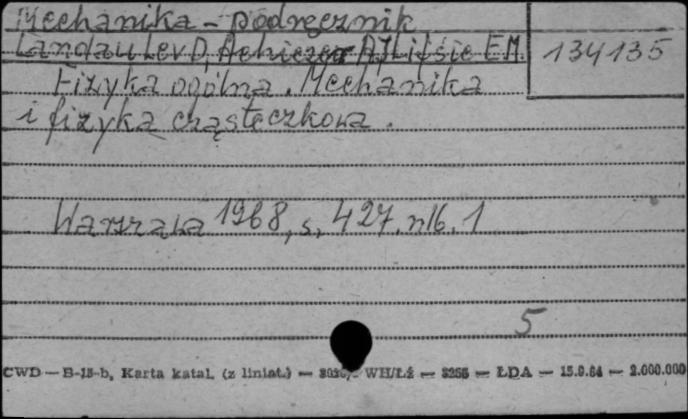 Mechanika - podręcznik
Landau Lev D, Achiezer A, Lifšic E.M.
134135
Fizyka ogólna. Mechanika
i fizyka cząsteczkowa.
Warszawa 1968, s. 427. nlb. 1
5
CWD — B-18-b, Karta katal. (z liniat.) — WH/Łź — 3255 — ŁDA — 15.9.64 — 2.000.000